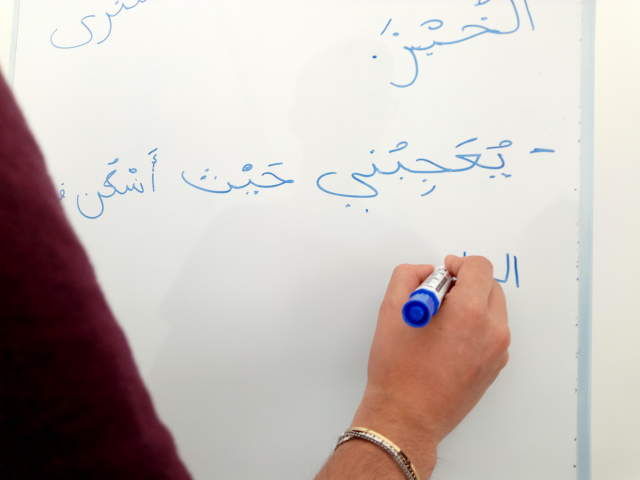 الخُبْزَ.
- يُعْجِبُني حَيْث أَسْكُن
ال